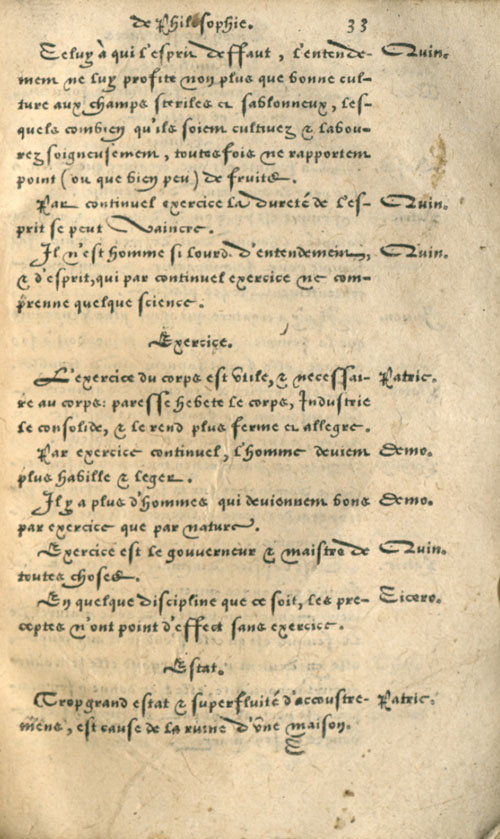 de Philosophie. 33
Celuy à qui l'esprit deffaut, l'entende- Quin.
ment ne luy profite non plus que bonne cul-
ture aux champs steriles et sablonneux, les-
quels combien qu'ils soient cultivez & labou-
rez soigneusement, toutesfois ne rapportent
point (ou que bien peu) de fruits.
Par continuel exercice la dureté de l'es- Quin.
prit se peut Vaincre.
Il n'est homme si lourd d'entendement, Quin.
& d'esprit, qui par continuel exercice ne com-
prenne quelque science.
Exercice.
L'exercice du corps est vtile, & necessai- Patric.
re au corps: paresse hebete le corps, Industrie
le consolide, & le rend plus ferme et allegre.
Par exercice continuel, l'homme devient Demo.
plus habille & leger.
Il y a plus d'hommes qui deviennent bons Demo.
par exercice que par nature.
Exercice est le gouverneur & maistre de Quin.
toutes choses.
En quelque discipline que ce soit, les pre- Cicero.
ceptes n'ont point d'effect sans exercice.
Estat.
Trop grand estat & superfluité d'accoustre- Patric.
mens, est cause de la ruine d'vne maison.